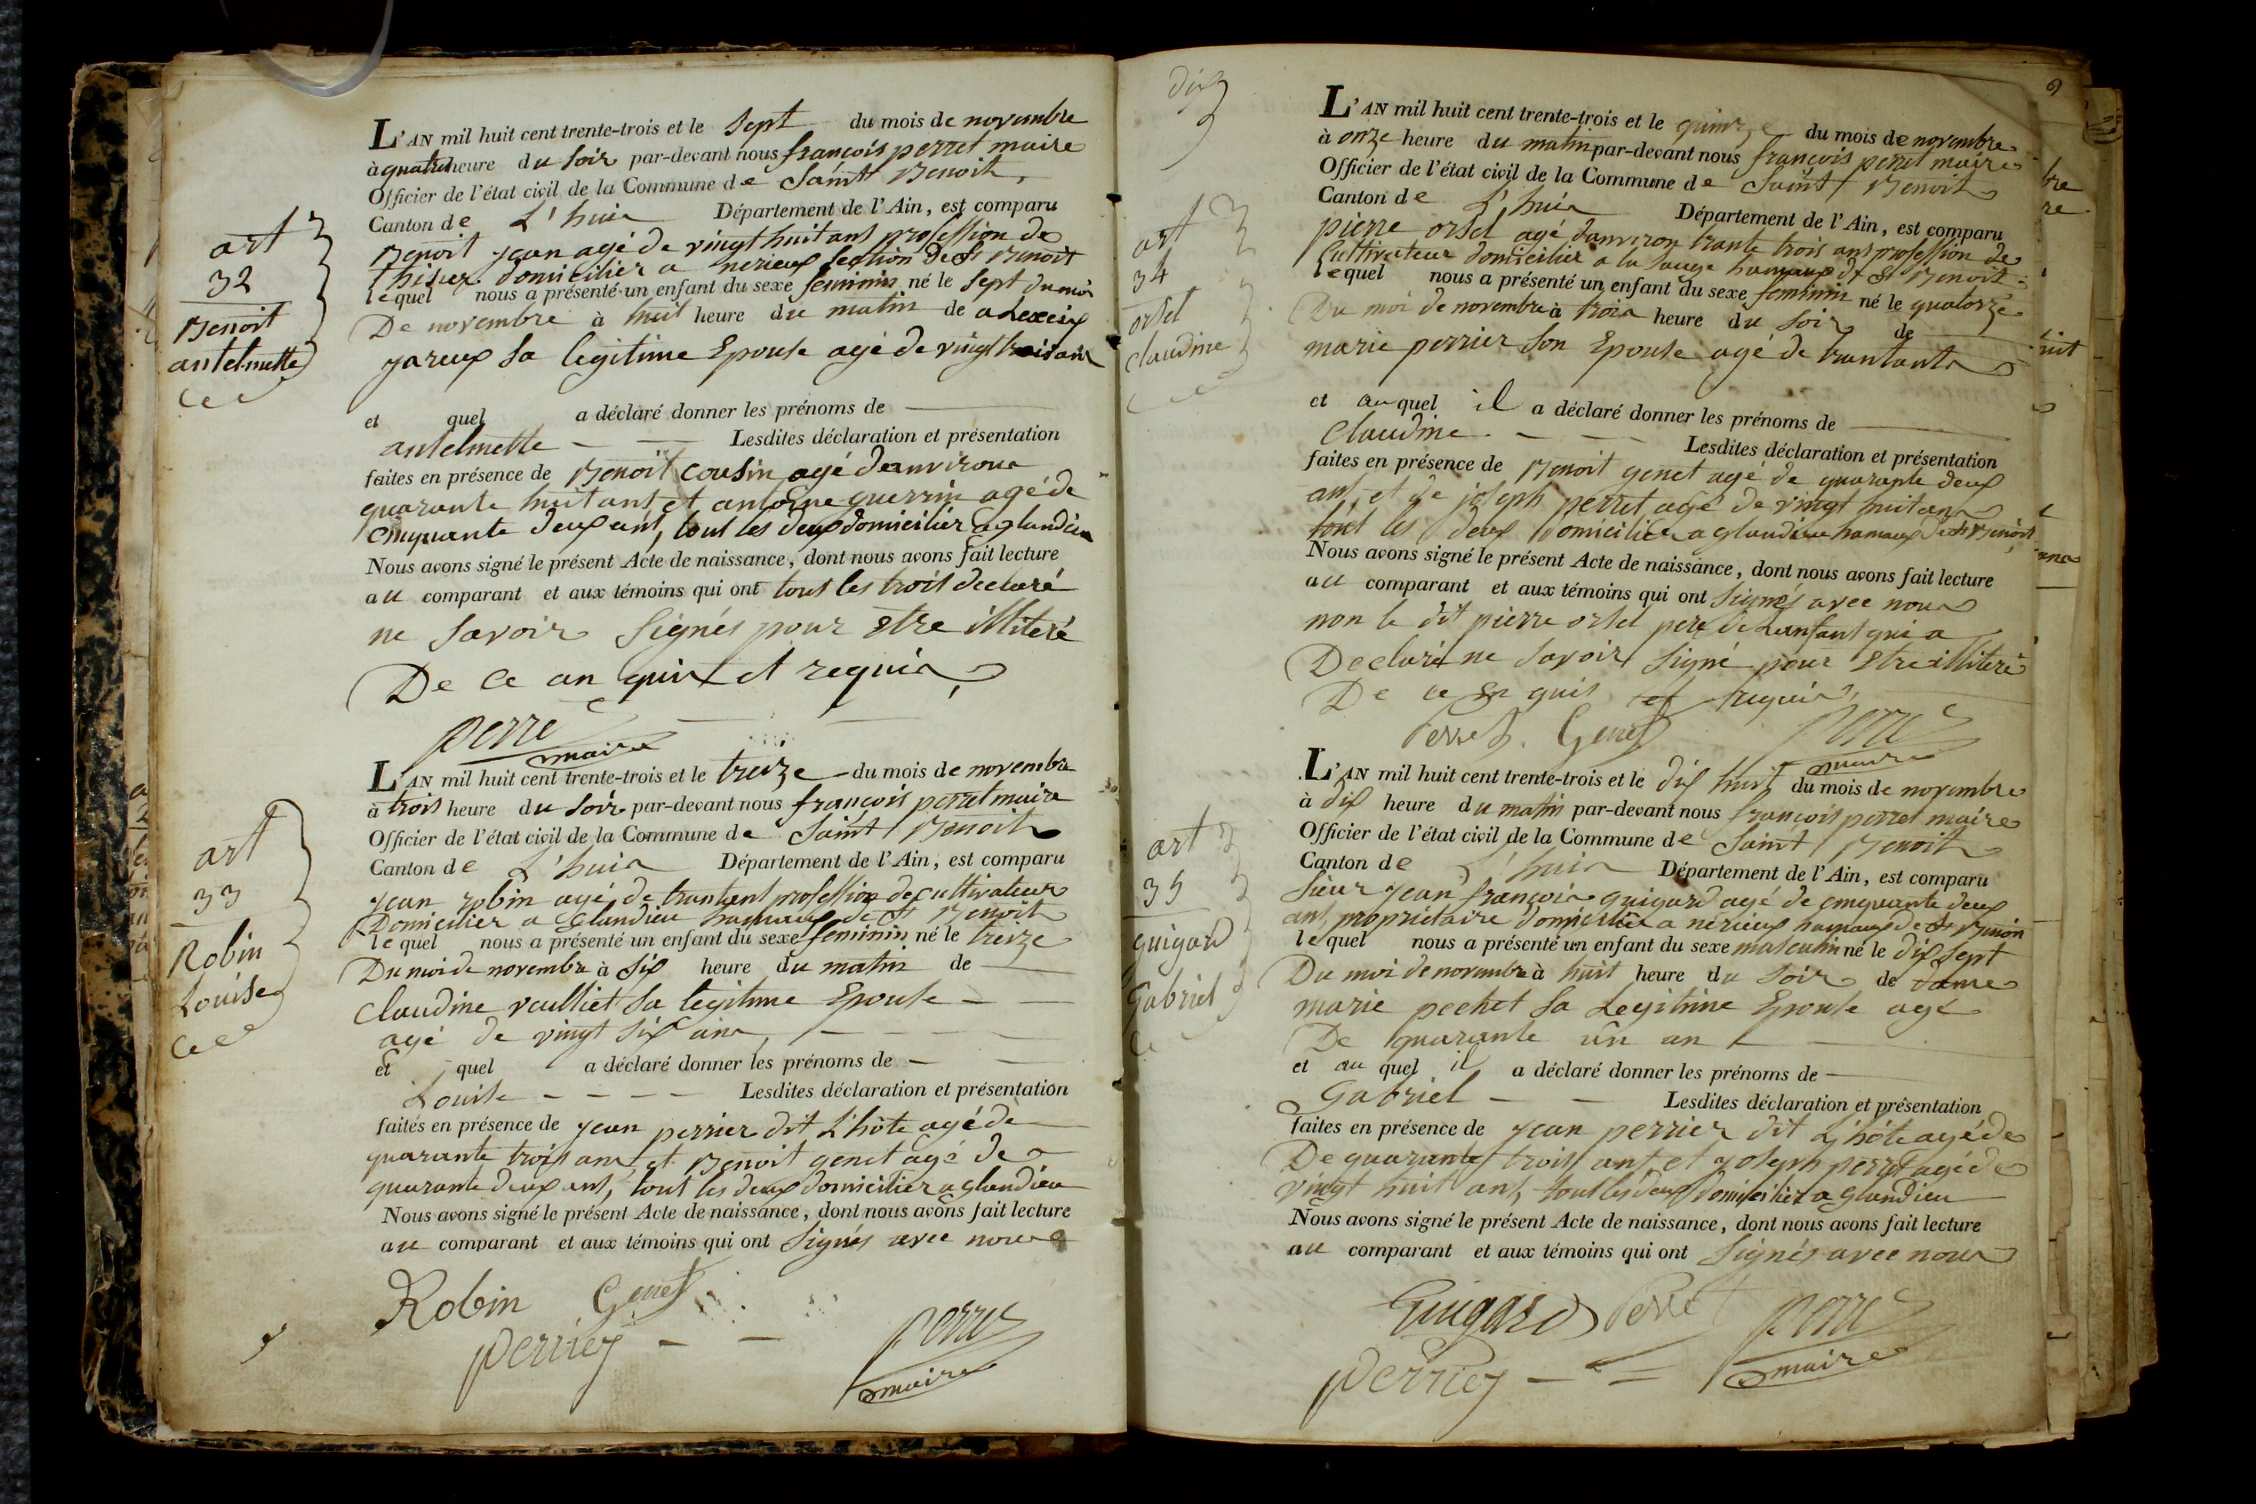 art
32
Benoit
antelmette
L'AN mil huit cent trente-trois et le sept du mois de novembre
à quatre heure du soir par-devant nous françois perret maire
Officier de l'état civil de la Commune de Saint Benoit,
Canton de L'huis Département de l'Ain, est comparu
Benoit jean agé de vingt huit ans profession de
domicilier a nerieux section de St Benoit
lequel nous a présenté un enfant du sexe feminin né le sept du moi
De novembre à huit heure du matin de
sa legitime Epouse agé de vingt trois ans
et quel a déclaré donner les prénoms de
antelmette Lesdites déclaration et présentation
faites en présence de Benoit cousin agé deanviron
quarante huit ant et antoine guerrin agé de
cinquante deux ant, tout les deux domicilier a glandieu
Nous avons signé le présent Acte de naissance, dont nous avons fait lecture
au comparant et aux témoins qui ont tout les trois declaré
ne savoir signés pour Etre illiteré
De ce an quis et requis
perre
maire
art
33
Robin
Louise
L'AN mil huit cent trente-trois et le treize du mois de novembre
à trois heure du soir par-devant nous françois perret maire
Officier de l'état civil de la Commune de Saint Benoit
Canton de L'huis Département de l'Ain, est comparu
jean robin agé de trantant profession de cultivateur
Domicilier a Glandieu hamaux de St Benoit
lequel nous a présenté un enfant du sexe feminin né le treize
Du moi de novembre à six heure du matin de
Claudine vaulliet sa legitime Epouse
agé de vingt six ans,
Et quel a déclaré donner les prénoms de
Louise Lesdites déclaration et présentation
faites en présence de jean perrier dit L'hôte agé de
quarante trois ans et Benoit genet agé de
quarante deux ant, tout les deux domicilier a glandieu
Nous avons signé le présent Acte de naissance, dont nous avons fait lecture
au comparant et aux témoins qui ont signés avec nous
Robin Genet
perrier
perre
maire
dix
9
art
34
ortel
claudine
L'AN mil huit cent trente-trois et le quinze du mois de novembre
à onze heure du matin par-devant nous françois perret maire
Officier de l'état civil de la Commune de Saint Benoit
Canton de L'huis Département de l'Ain, est comparu
pierre ortel agé danviron trante trois ans profession de
Cultivateur domicilier a la sauge hamaux de St Benoit
lequel nous a présenté un enfant du sexe feminin né le quatorze
Du moi de novembre à trois heure du soir de
marie perrier son Epouse agé de trantants
et au quel il a déclaré donner les prénoms de
Claudine Lesdites déclaration et présentation
faites en présence de Benoit genet agé de quarante deux
ant et de joseph perret agé de vingt huit ans
tout les deux Domicilier a glandieu hamaux de St Benoit
Nous avons signé le présent Acte de naissance, dont nous avons fait lecture
au comparant et aux témoins qui ont signés avec nous
non le dit pierre ortel pere de Lanfant qui a
Declaré ne savoir signé pour Etre illiteré
De ce En quis et requis,
Perret Genet perre
maire
art
35
guigard
Gabriel
L'AN mil huit cent trente-trois et le dix huit du mois de novembre
à dix heure du matin par-devant nous françois perret maire
Officier de l'état civil de la Commune de Saint Benoit
Canton de L'huis Département de l'Ain, est comparu
sieur jean françois guigard agé de cinquante deux
ant, propriétaire Domicilier a nerieux hamaux de St Benoi
lequel nous a présenté un enfant du sexe masculin né le dix sept
Du moi de novembre à huit heure du soir de dame
marie pechet sa Legitime Epouse agé
De quarante un an
et au quel il a déclaré donner les prénoms de
Gabriel Lesdites déclaration et présentation
faites en présence de jean perrier dit L'hôte agé de
De quarante trois ant et joseph perret agé de
vingt huit ant, tout les deux domicilier a glandieu
Nous avons signé le présent Acte de naissance, dont nous avons fait lecture
au comparant et aux témoins qui ont signés avec nous
Guigard Perret perre
perrier maire